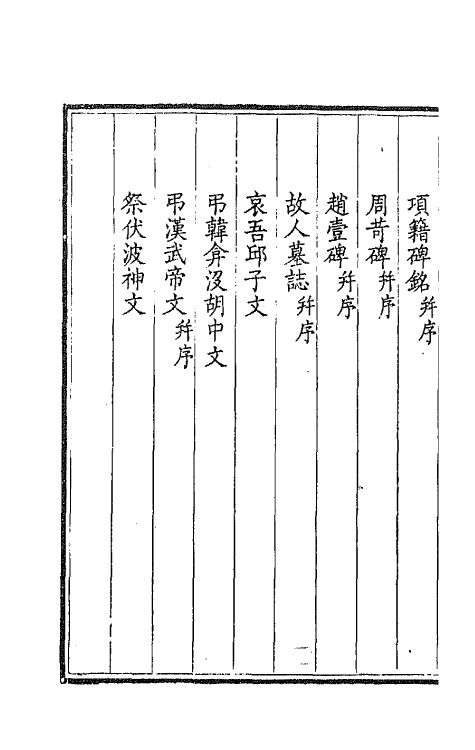 項籍碑銘并序
周苛碑并序
趙壹碑并序
故人墓誌并序
哀吾邱子文
弔韓弇沒胡中文
弔漢武帝文并序
祭伏波神文